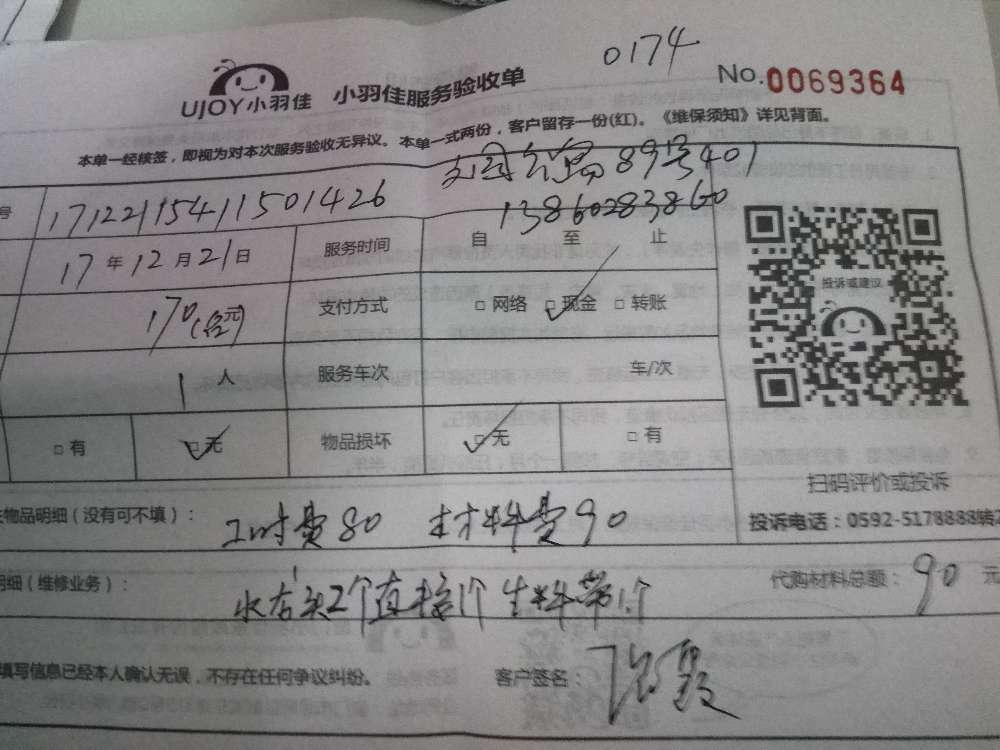 0174
UJOY小羽佳 小羽佳服务验收单 No.0069364
本单一经核签，即视为对本次服务验收无异议。本单一式两份，客户留存一份(红)。《维保须知》详见背面。
89号401
号 17122115411501426 13860283860
17年12月21日 服务时间 自 至 止
170(元) 支付方式 □网络 □现金 □转账
1人 服务车次 车/次
投诉或建议
□有 □无 物品损坏 □无 □有
扫码评价或投诉
物品明细（没有可不填）： 工时费80 材料费90
投诉电话：0592-5178888转
明细（维修业务）： 水龙头2个直接1个生料带1个 代购材料总额：90元
填写信息已经本人确认无误，不存在任何争议纠纷。 客户签名：